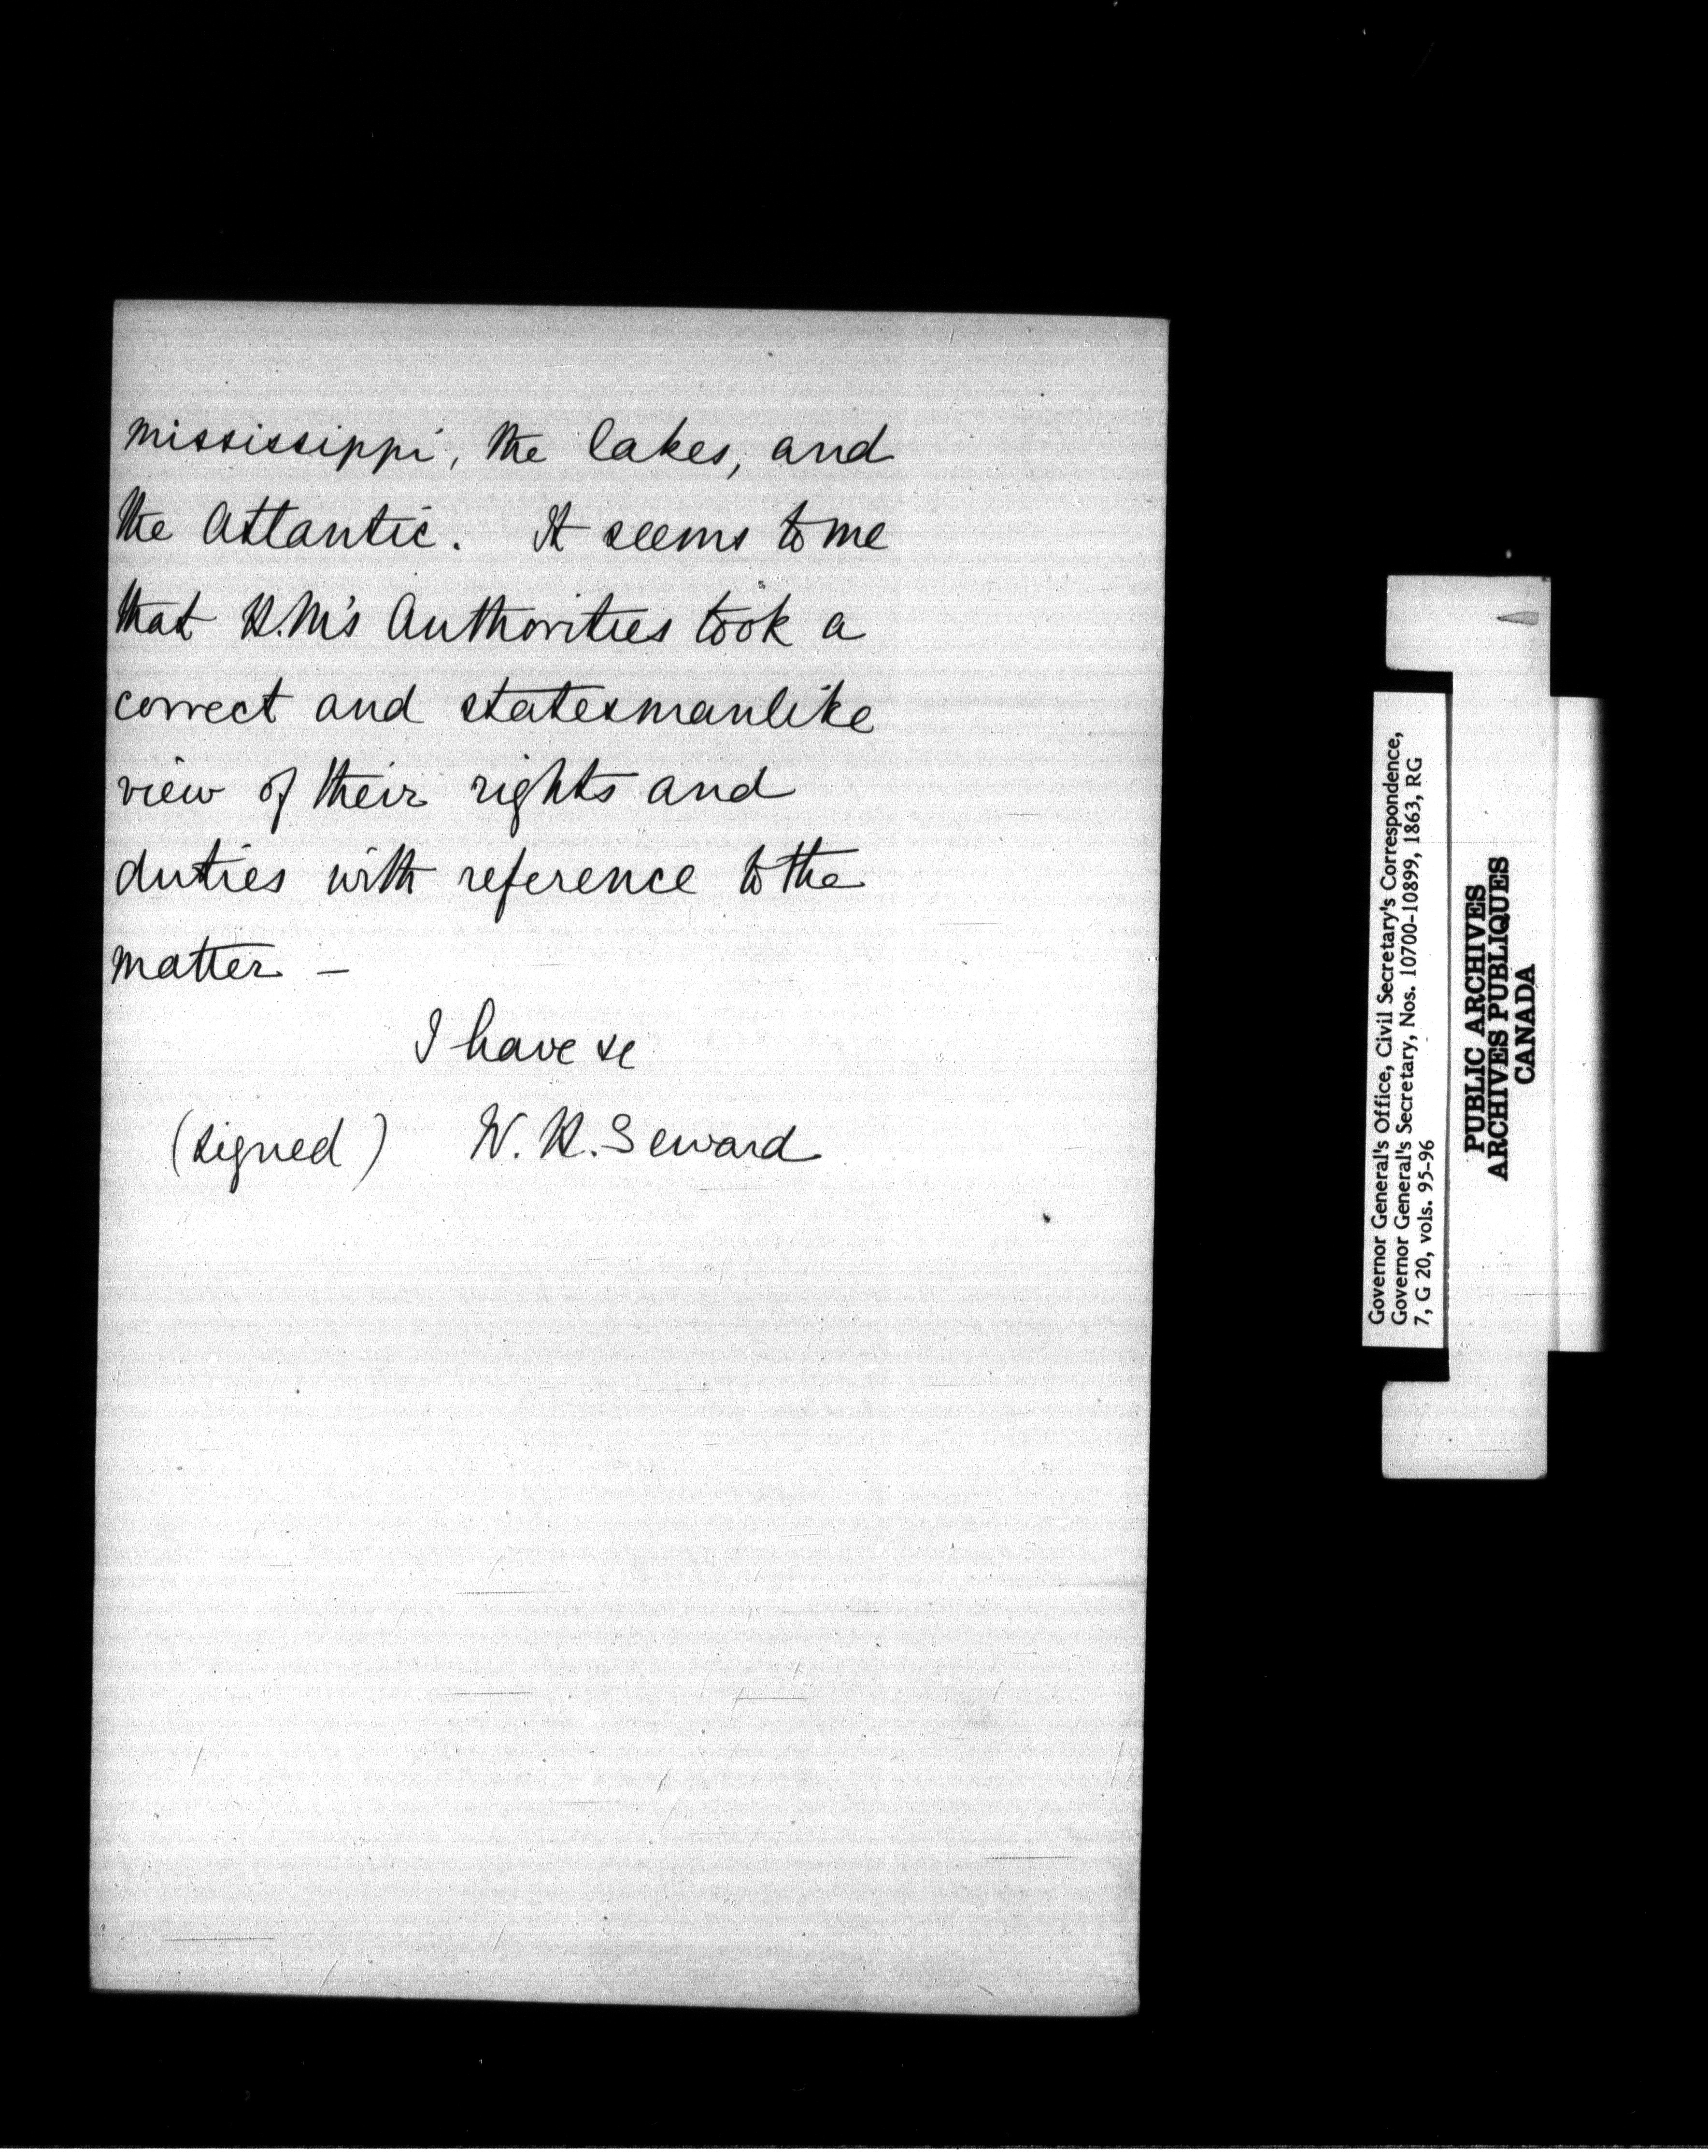 Mississippi, the lakes, and
the Atlantic. It seems to me
that H.M's Authorities took a
correct and statesmanlike
view of their rights and
duties with reference to the
matter –
I have &c
(signed) W. H. Seward
Governor General's Office, Civil Secretary's Correspondence,
Governor General's Secretary, Nos. 10700-10899, 1863, RG
7, G 20, vols. 95-96
PUBLIC ARCHIVES
ARCHIVES PUBLIQUES
CANADA